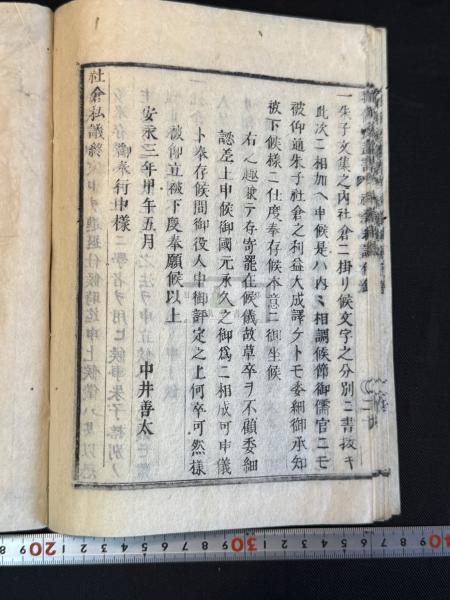 一朱子文集之内社倉ニ掛リ候文字之分別ニ書抜キ
此次ニ相加へ申候是ハ内々相調候節御儒官ニモ
被仰通朱子社倉之利益大成譯ケトモ委細御承知
被下候樣ニ仕度奉存候本意ニ御坐候
右之趣兼テ存寄罷在候儀故草卒ヲ不顧委細
認差上申候御國元永久之御爲ニ相成可申儀
ト奉存候間御役人中御評定之上何卒可然樣
被仰立被下度奉願候以上
安永三年甲午五月
中井善太
御奉行中樣
社倉私議終
20
30
40